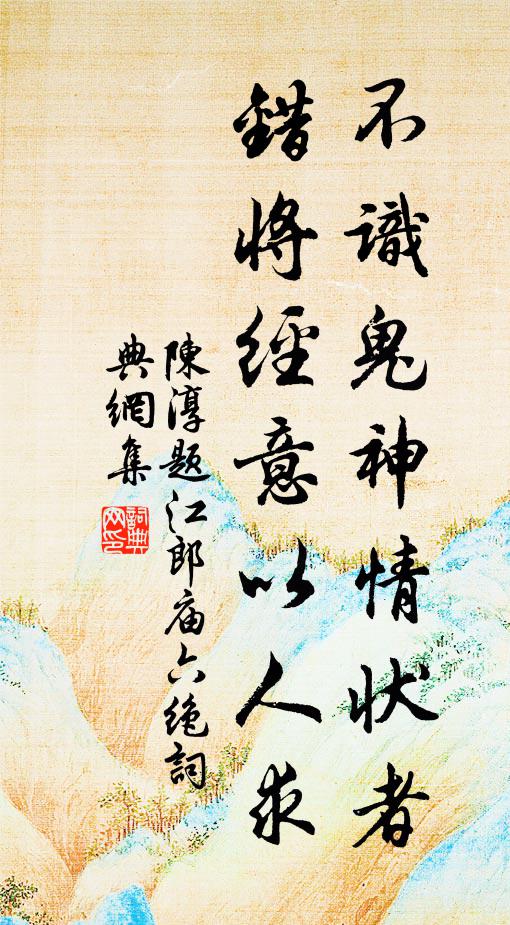 不識鬼神情狀者
錯將經意以人求
陳淳題江郎庙六絶詞
典網集
詞典
网印